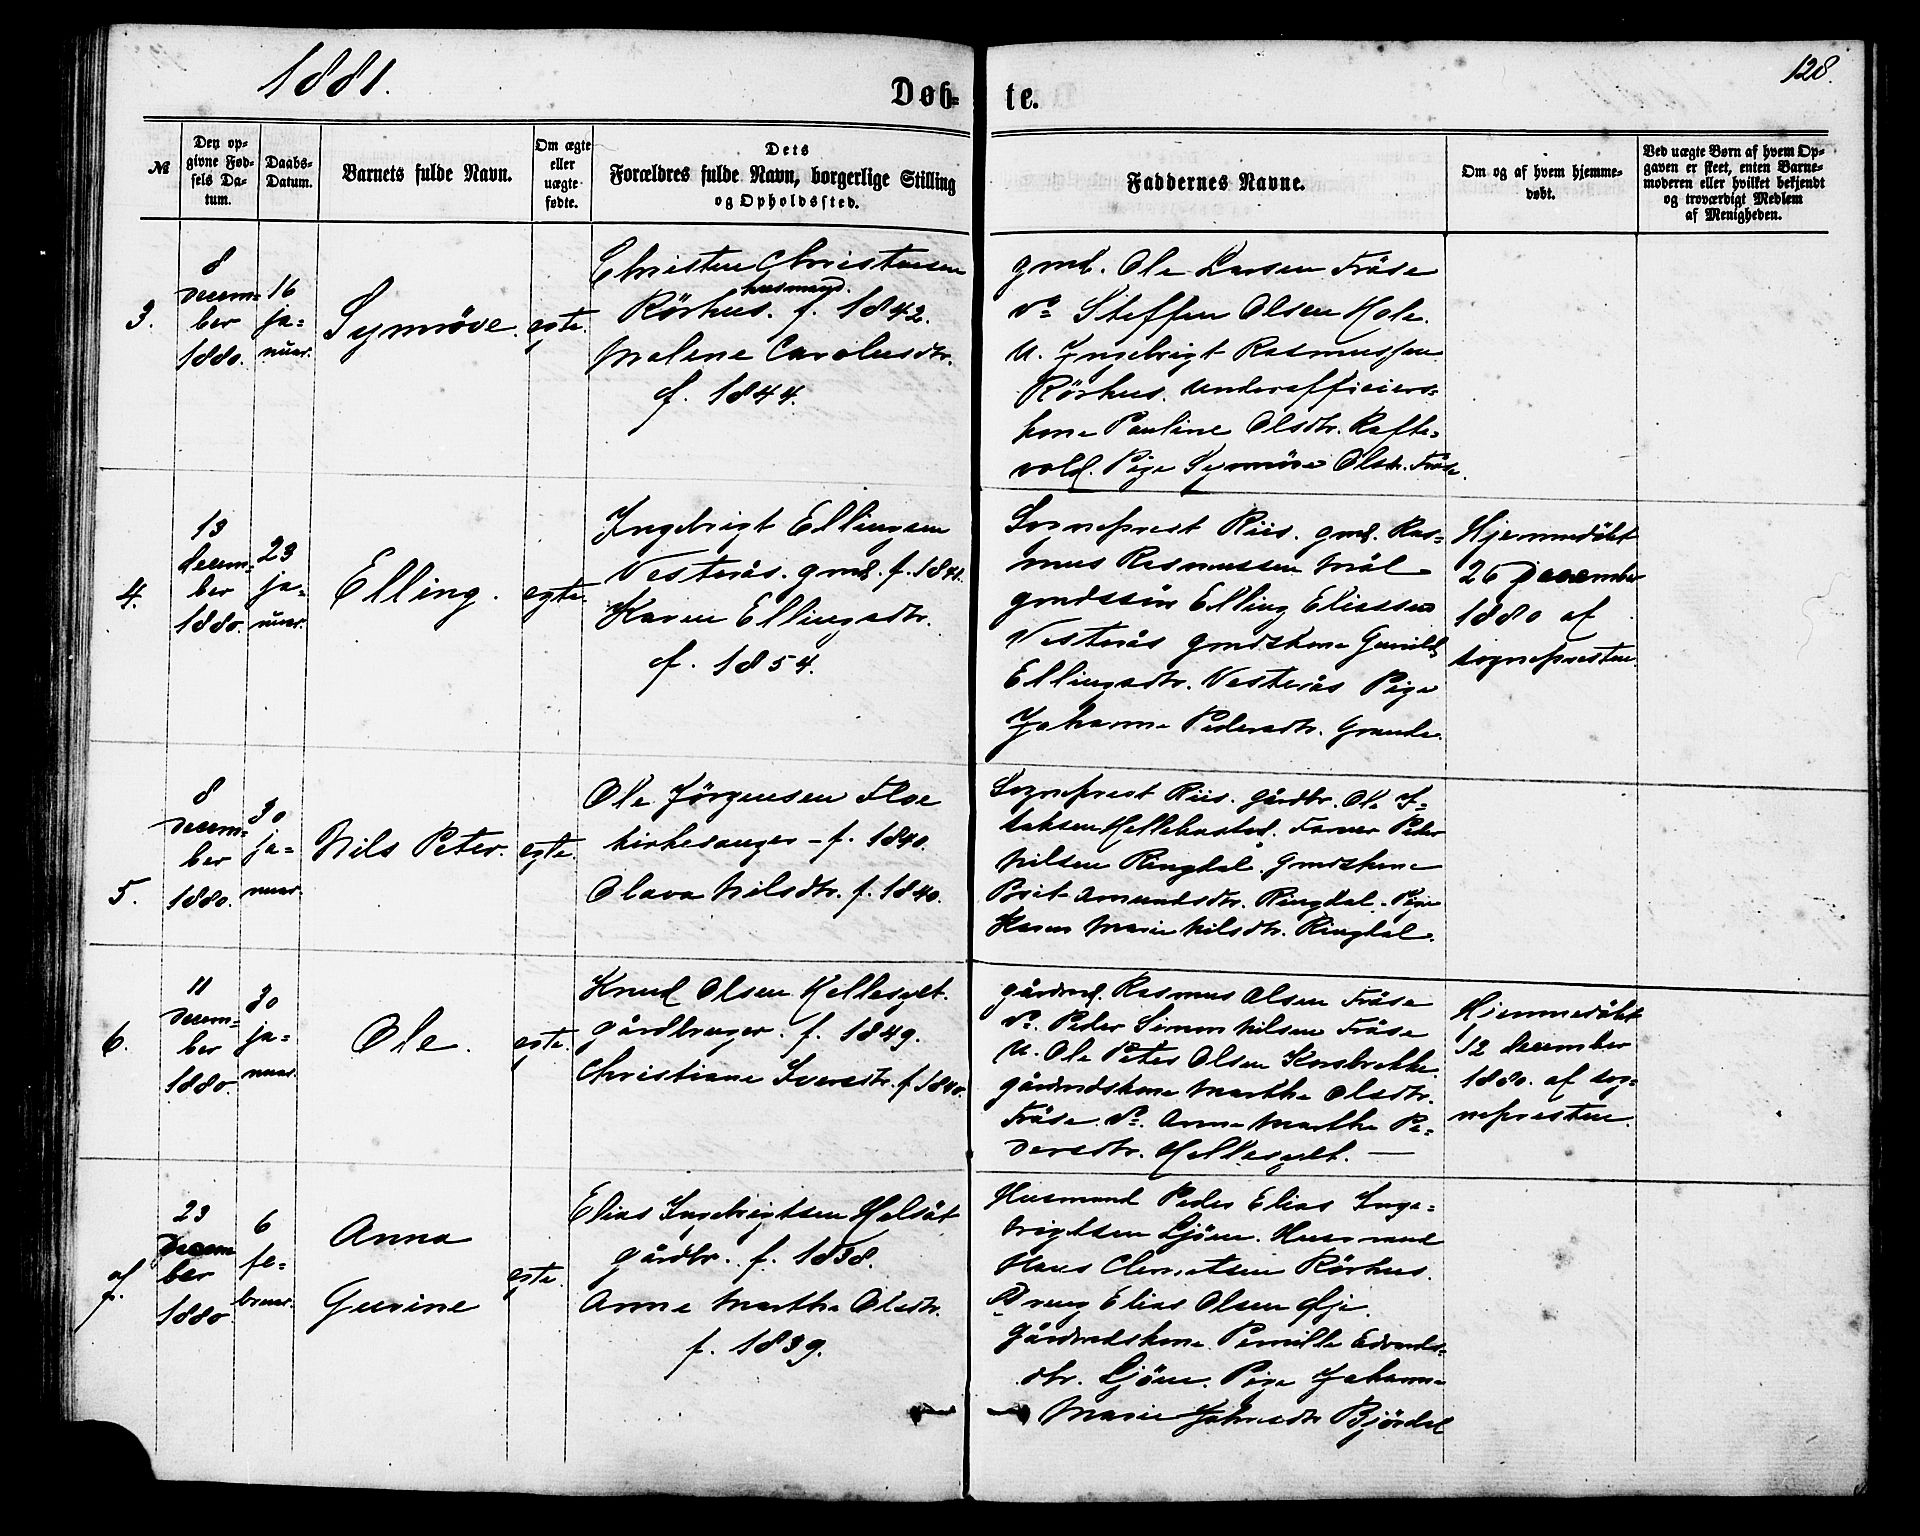 1881.
128.
Døb-te.
№
Den op-
givne Fød-
sels Da-
tum.
Daabs-
Datum.
Barnets fulde Navn.
Om ægte
eller
uægte
fødte.
Dets
Forældres fulde Navn, borgerlige Stilling
og Opholdssted.
Faddernes Navne.
Om og af hvem hjemme-
døbt.
Ved uægte Børn af hvem Op-
gaven er skeet, enten Barne-
moderen eller hvilket bekjendt
og troværdigt Medlem
af Menigheden.
3.
8
decem-
ber
1880.
16
ja-
nuar.
Synnöve.
egte.
Christen Christensen
husmand.
Rörhus. f. 1842.
Malene Carolusdtr.
f. 1844.
gmd. Ole Larsen Fröse
do Steffen Olsen Hole.
U. Ingebrigt Rasmussen
Rörhus. Underofficiers-
kone Pauline Olsdtr. Rafte-
vold. Pige Synnöve Olsdr. Fröse.
4.
13
decem-
ber
1880.
23
ja-
nuar.
Elling.
egte.
Ingebrigt Ellingsen
Vesterås. gmd. f. 1841.
Karen Ellingsdtr.
f. 1854.
Sogneprest Riis. gmd. Ras-
mus Rasmussen Mål
gmdssön Elling Eliassen
Vesterås gmdskone Gunild
Ellingsdtr. Vesterås Pige
Johanne Pedersdtr. Grande.
Hjemmedöbt
26 december
1880 af
sognepresten.
5.
8
decem-
ber
1880.
30
ja-
nuar.
Nils Peter.
egte.
Ole Jörgensen Floe
kirkesanger - f. 1840.
Olava Nilsdtr. f. 1840.
Sogneprest Riis. gårdbr. Ole I-
saksen Hellebostad. Farver Peder
Nilsen Ringdal. gmdskone
Brit Amundsdtr. Ringdal. Pige
Karen Marie Nilsdtr. Ringdal.
6.
11
decem-
ber
1880.
30
ja-
nuar.
Ole.
egte.
Knud Olsen Hellesylt.
gårdbruger. f. 1849.
Christiane Iversdtr. f. 1840.
gårdmd. Rasmus Olsen Fröse
do. Peder Simon Nilsen Fröse
U. Ole Peter Olsen Korsbrekke.
gårdmdskone Marthe Olsdtr.
Fröse. do. Anne Marthe Pe-
dersdtr. Hellesylt. —
Hjemmedöbt
12 december
1880. af sog-
nepresten.
7.
23
decem
ber
1880
6
fe-
bruar.
Anna
Gurine
egte.
Elias Ingebrigtsen Helsåt
gårdbr. f. 1838.
Anne Marthe Olsdtr.
f. 1839.
Husmand Peder Elias Inge-
brigtsen Ljöen. Husmand
Hans Clemetsen Rörhus.
Dreng Elias Olsen Øje.
gårdmdskone Pernille Edvards-
dtr. Ljöen. Pige Johanne
Marie Johnsdtr Björdal